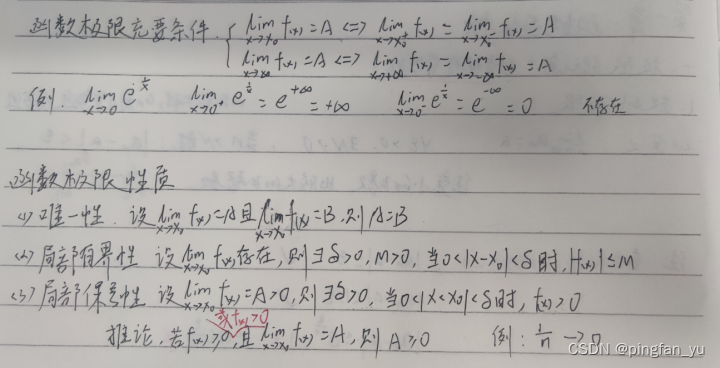 函数极限充要条件 { lim_{x→x₀} f(x)=A <=> lim_{x→x₀⁺} f(x) = lim_{x→x₀⁻} f(x)=A
lim_{x→∞} f(x)=A <=> lim_{x→+∞} f(x) = lim_{x→-∞} f(x)=A
例. lim_{x→0} e^{1/x} lim_{x→0⁺} e^{1/x} = e^{+∞} = +∞ lim_{x→0⁻} e^{1/x} = e^{-∞} = 0 不存在
函数极限性质
(1) 唯一性. 设 lim_{x→x₀} f(x)=A 且 lim_{x→x₀} f(x)=B, 则 A=B
(2) 局部有界性 设 lim_{x→x₀} f(x) 存在, 则 ∃δ>0, M>0, 当 0<|x-x₀|<δ 时, |f(x)|≤M
(3) 局部保号性 设 lim_{x→x₀} f(x)=A>0, 则 ∃δ>0, 当 0<|x<x₀|<δ 时, f(x)>0
或 f(x)>0
推论. 若 f(x)≥0, 且 lim_{x→x₀} f(x)=A, 则 A≥0 例: 1/n → 0
CSDN @pingfan_yu